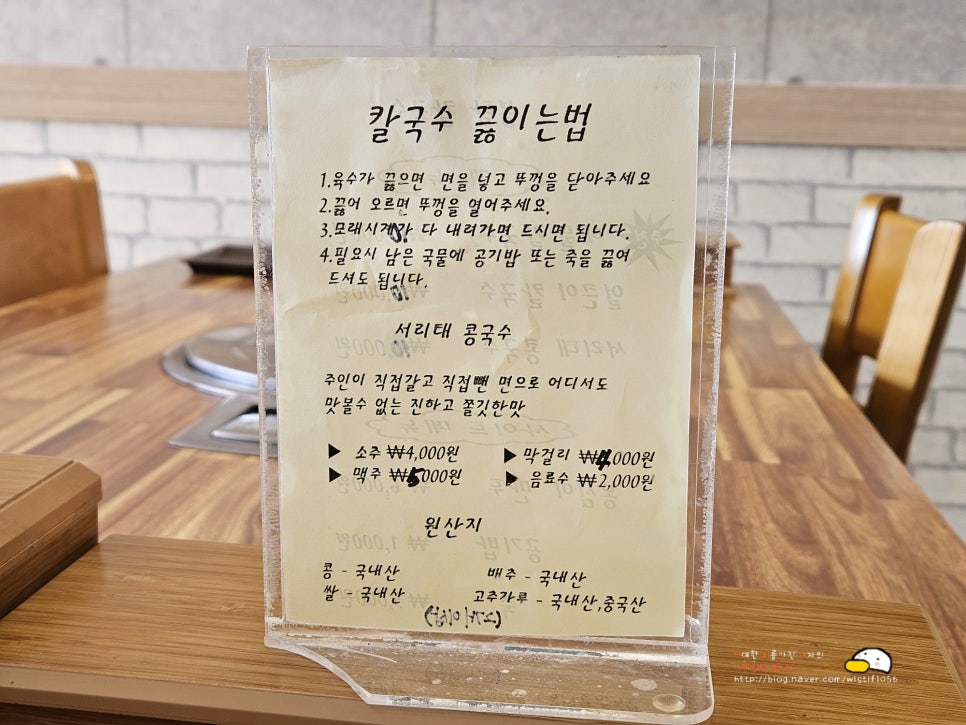 칼국수 끓이는법
1.육수가 끓으면 면을 넣고 뚜껑을 닫아주세요
2.끓어 오르면 뚜껑을 열어주세요.
3.모래시계가 다 내려가면 드시면 됩니다.
4.필요시 남은 국물에 공기밥 또는 죽을 끓여
드셔도 됩니다.
서리태 콩국수
주인이 직접갈고 직접뺀 면으로 어디서도
맛볼수 없는 진하고 쫄깃한맛
▶ 소주 ₩4,000원 ▶ 막걸리 ₩4,000원
▶ 맥주 ₩5,000원 ▶ 음료수 ₩2,000원
원산지
콩 - 국내산 배추 - 국내산
쌀 - 국내산 고추가루 - 국내산,중국산
http://blog.naver.com/wistif1056